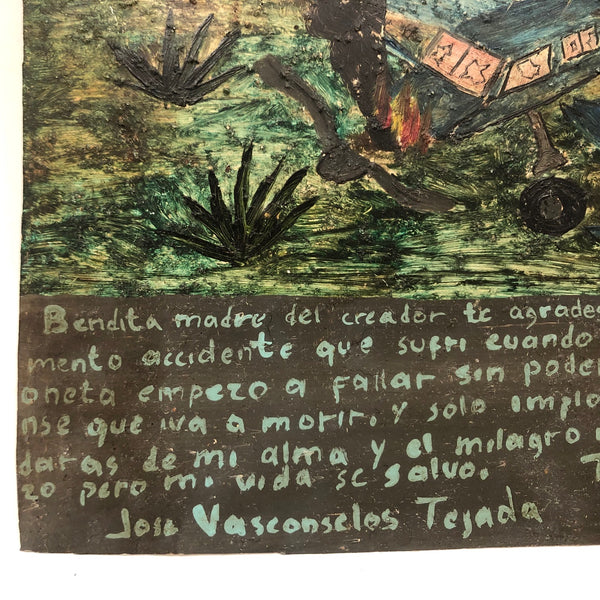 Bendita madre del creador te agrades
mento accidente que sufri cuando
oneta empezo a fallar sin poder
nse que iva a morir, y solo implo
daras de mi alma y el milagro
zo pero mi vida se salvo. T
Jose Vasconselos Tejada